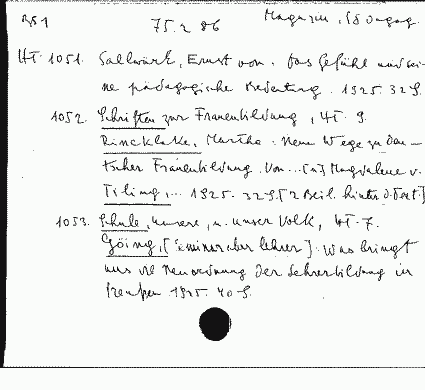 75.2 86
Magazin, f. Pädagog.
Ht. 1051. Sallwürk, Ernst von. Das Gefühl und sei-
ne pädagogische Bedeutung. 1925. 32 S.
1052. Schriften zur Frauenbildung, Ht. 9.
Rincklake, Martha. Neue Wege zu deu-
tscher Frauenbildung. Von ... [u] Magdalene v.
Tiling ... 1925. 32 S. [2 Beil. hinter d. Text]
1053. Schule, unsere, u. unser Volk, Ht. 7.
Göing, [Seminaroberlehrer]. Was bringt
uns die Neuordnung der Lehrerbildung in
Preußen. 1925. 40 S.